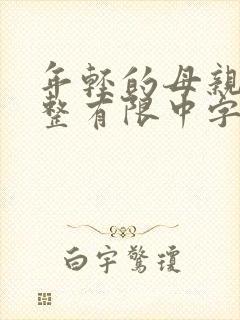 年轻的母亲
整有限中字
白宇惊琼